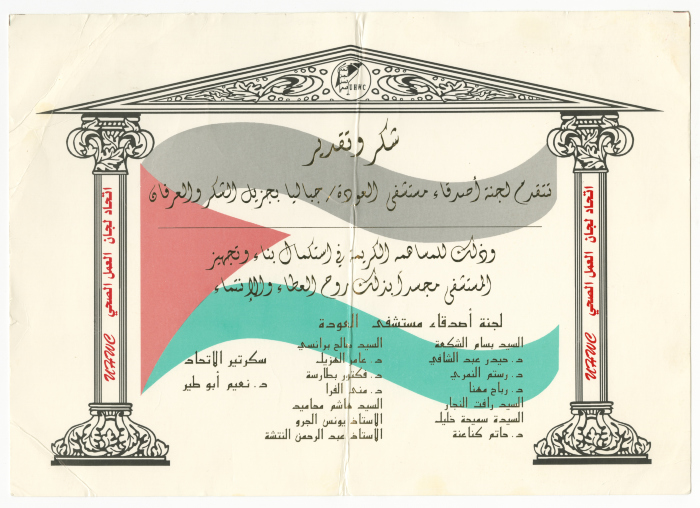 UHWC
شكر وتقدير
تتقدم لجنة أصدقاء مستشفى العودة / جباليا بجزيل الشكر والعرفان
وذلك للمساهمه الكريمة في استكمال بناء وتجهيز
المستشفى مجسداً بذلك روح العطاء والإنتماء
لجنة أصدقاء مستشفى العودة
السيد بسام الشكعة
د. حيدر عبد الشافي
د. رستم النمري
د. رباح مهنا
السيد رأفت النجار
السيدة سميحة خليل
د. حاتم كناعنة
السيد صالح برانسي
د. عامر الهزيل
د. فكتور بطارسة
د. منى الفرا
السيد هاشم محاميد
الاستاذ يونس الجرو
الاستاذ عبد الرحمن النتشة
سكرتير الاتحاد
د. نعيم أبو طير
اتحاد لجان العمل الصحي
UHWC
اتحاد لجان العمل الصحي
UHWC